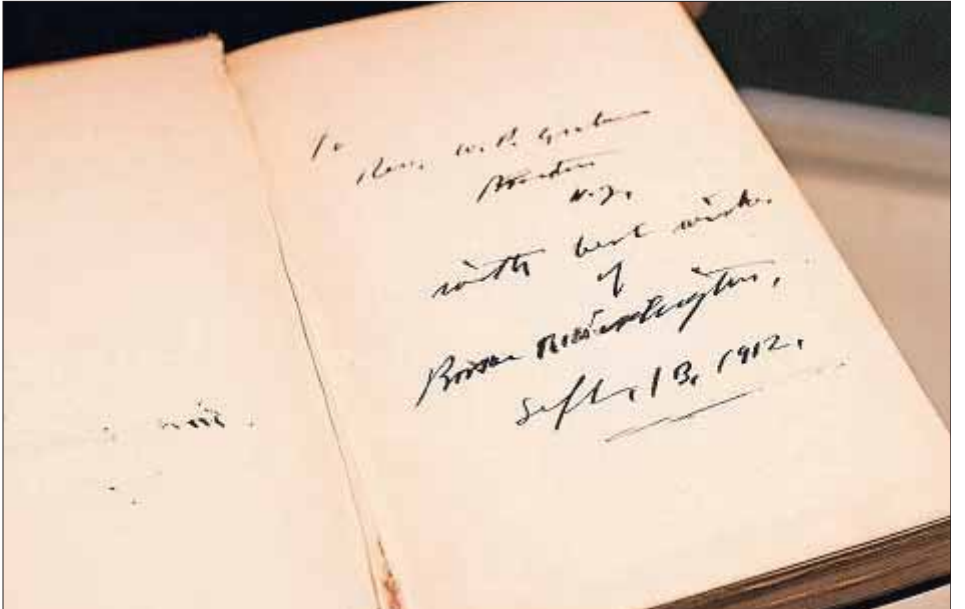 To
Rev. W. P. Graham
N. J.,
with best wishes
of
Booker T. Washington,
Sept, 13, 1912,